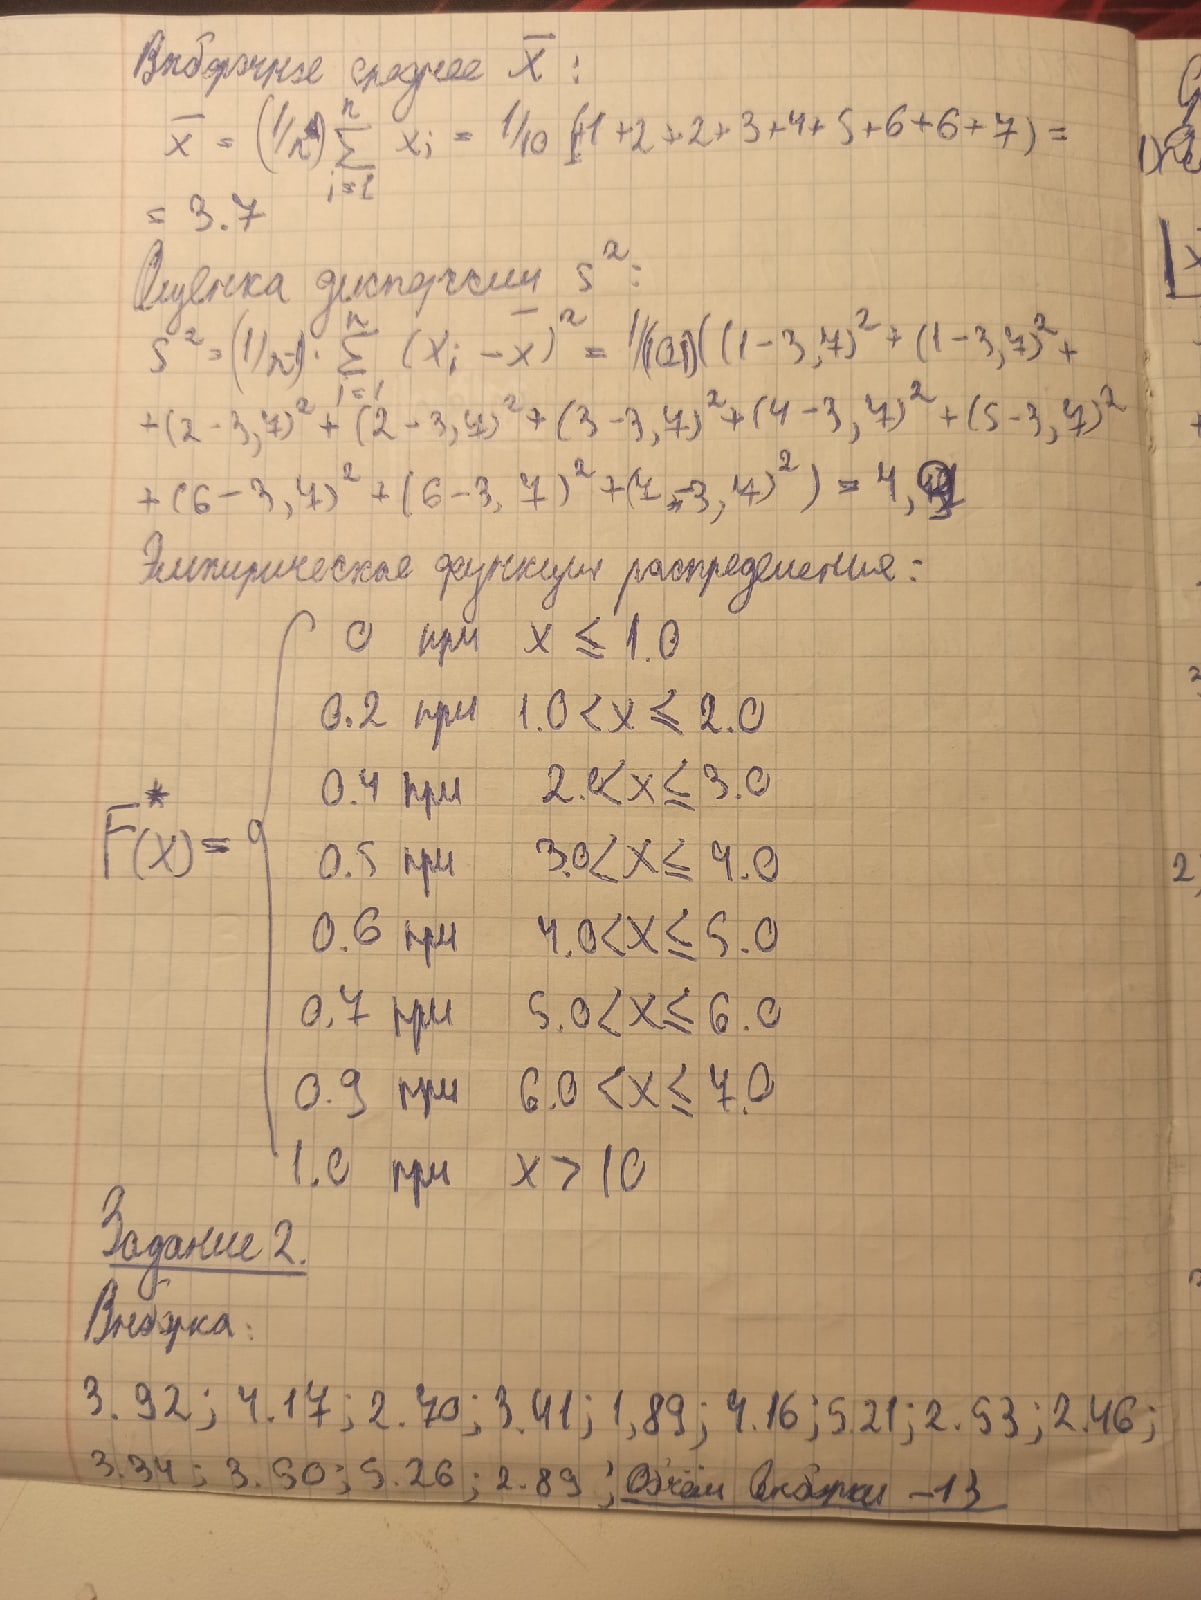 Выборочное среднее x̄:
x̄ = (1/n) ∑ᵢ₌₁ⁿ xᵢ = 1/10 (1+2+2+3+4+5+6+6+7) =
= 3.7
Оценка дисперсии s²:
s² = (1/n-1) · ∑ᵢ₌₁ⁿ (xᵢ - x̄)² = ((1-3,7)² + (1-3,7)² +
+(2-3,7)² + (2-3,7)² + (3-3,7)² + (4-3,7)² + (5-3,7)²
+(6-3,7)² + (6-3,7)² + (7-3,7)²) = 4,
Эмпирическая функция распределения:
0 при x ≤ 1.0
0.2 при 1.0 < x ≤ 2.0
0.4 при 2.0 < x ≤ 3.0
F*(x) = {
0.5 при 3.0 < x ≤ 4.0
0.6 при 4.0 < x ≤ 5.0
0,7 при 5.0 < x ≤ 6.0
0.9 при 6.0 < x ≤ 7.0
1.0 при x > 10
Задание 2.
Выборка:
3.92; 4.17; 2.70; 3.41; 1,89; 4.16; 5.21; 2.53; 2.46;
3.34; 3.50; 5.26; 2.89; Объём выборки - 13